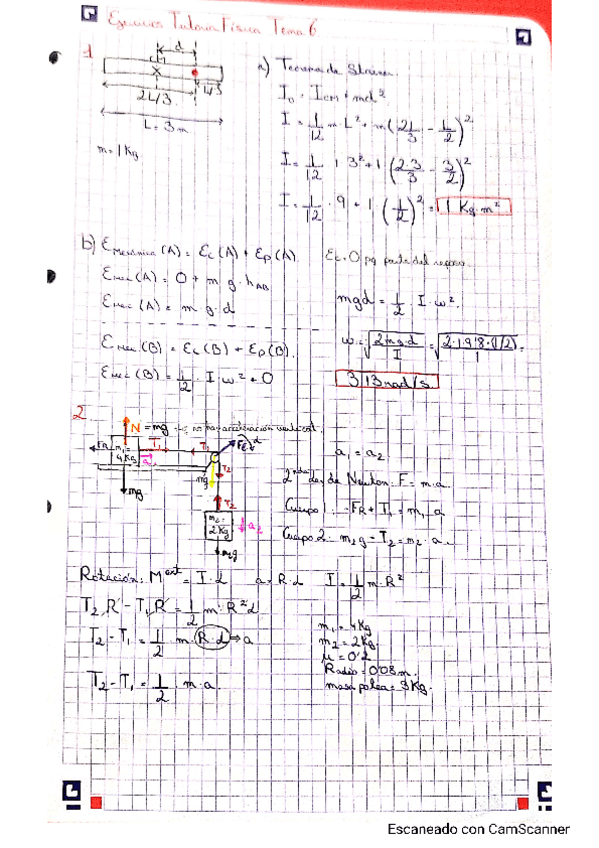 Ejercicios Tutoría Física Tema 6
1
d
CM
2L/3
L/3
L = 3m
m = 1Kg
a) Teorema de Steiner
I₀ = Icm + md²
I = 1/12 · m · L² + m (2L/3 - L/2)²
I = 1/12 · 1 · 3² + 1 (2·3/3 - 3/2)²
I = 1/12 · 9 + 1 (1/2)² = 1 Kg·m²
b) Emecánica (A) = Ec (A) + Ep (A)
Ec = 0 pq parte del reposo
Emec (A) = 0 + m · g · hAB
Emec (A) = m · g · d
Emec (B) = Ec (B) + Ep (B).
Emec (B) = 1/2 · I · ω² + 0
mgd = 1/2 · I · ω².
ω = √(2mg·d/I) = √(2·1·9'8·(1/2)/1) =
3'13 rad/s
2
N = mg → no hay aceleración vertical.
FR
m₁ = 4Kg
T₁
T₁
α
T₂
mg
mg
T₂
m₂ = 2Kg
a₂
m₂g
a₁ = a₂
2nda Ley de Newton: F = m·a.
Cuerpo 1: -FR + T₁ = m₁ · a
Cuerpo 2: m₂g - T₂ = m₂ · a.
Rotación: Mext = I · α a = R · α I = 1/2 m · R²
T₂ R - T₁ R = 1/2 m · R² α
T₂ - T₁ = 1/2 · m · R · α ⇒ a
T₂ - T₁ = 1/2 · m · a
m₁ = 4Kg
m₂ = 2Kg
μ = 0'2
Radio = 0'08m.
masa polea = 3Kg.
Escaneado con CamScanner